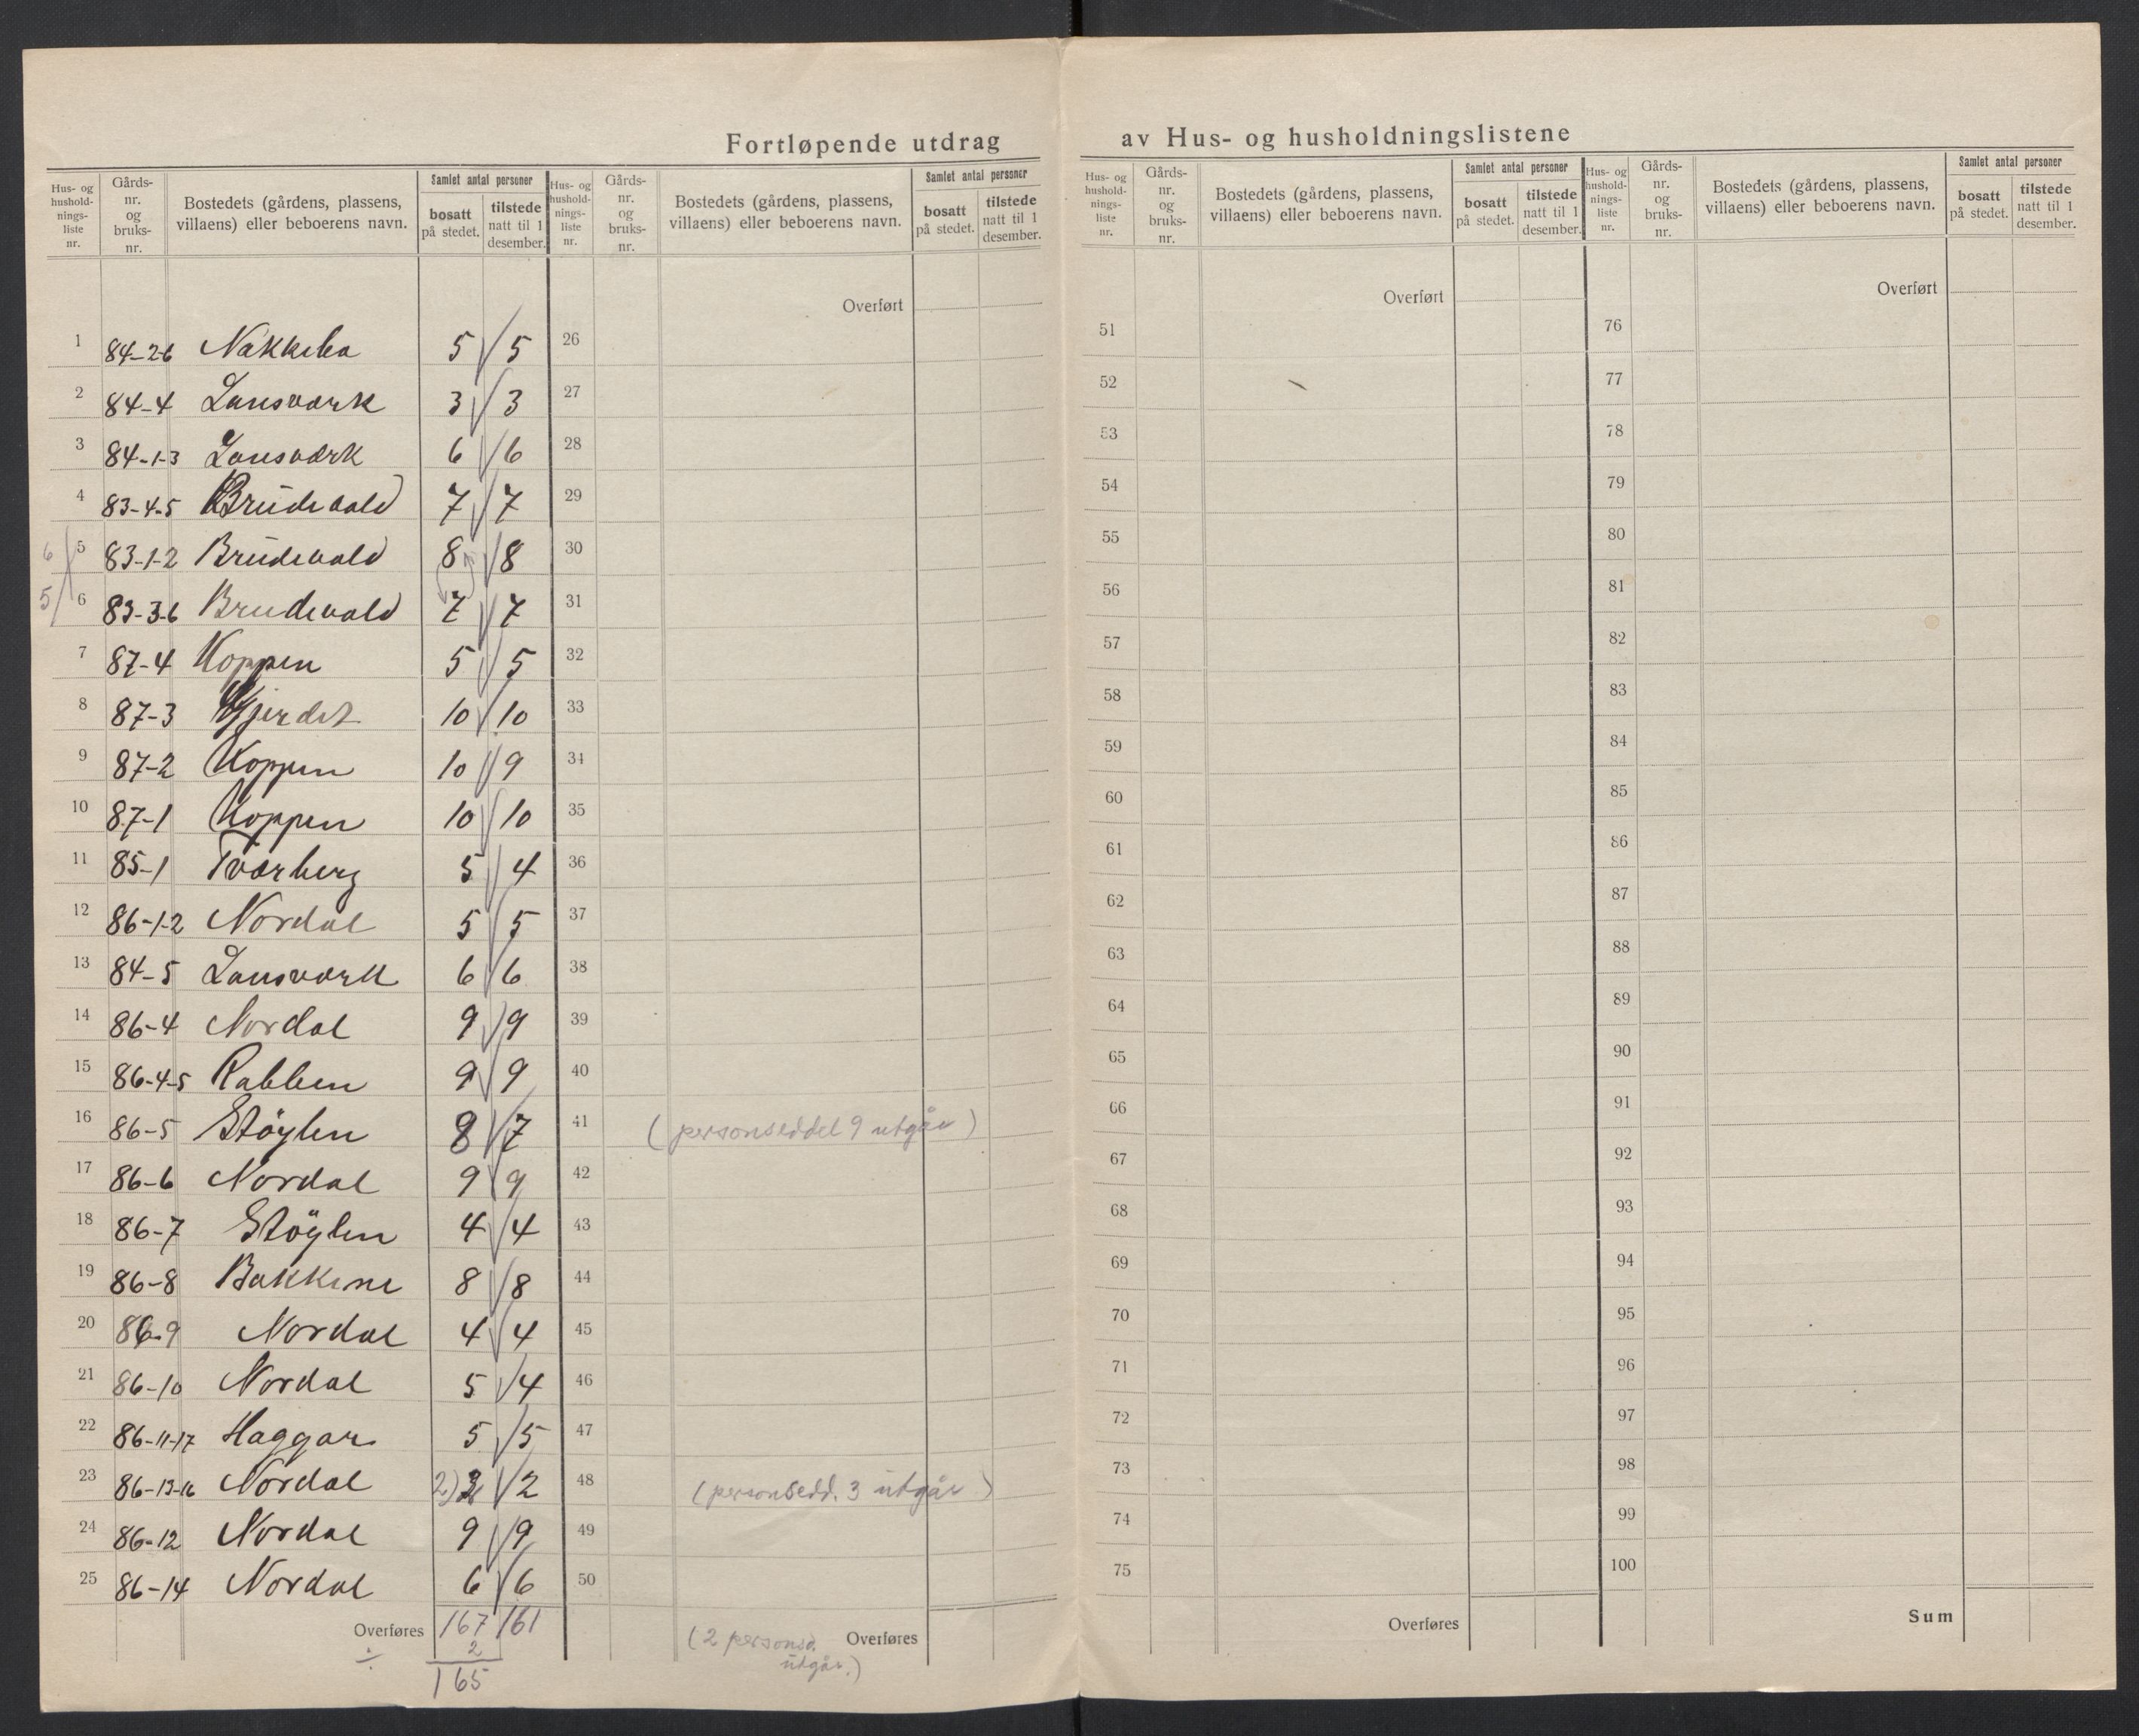 Fortløpende utdrag av Hus- og husholdningslistene
Hus- og hushold-nings-liste nr. Gårds-nr. og bruks-nr. Bostedets (gårdens, plassens, villaens) eller beboerens navn. Samlet antal personer bosatt på stedet. tilstede natt til 1 desember.
Hus- og hushold-nings-liste nr. Gårds-nr. og bruks-nr. Bostedets (gårdens, plassens, villaens) eller beboerens navn. Samlet antal personer bosatt på stedet. tilstede natt til 1 desember.
Hus- og hushold-nings-liste nr. Gårds-nr. og bruks-nr. Bostedets (gårdens, plassens, villaens) eller beboerens navn. Samlet antal personer bosatt på stedet. tilstede natt til 1 desember.
Hus- og hushold-nings-liste nr. Gårds-nr. og bruks-nr. Bostedets (gårdens, plassens, villaens) eller beboerens navn. Samlet antal personer bosatt på stedet. tilstede natt til 1 desember.
Overført Overført Overført
1 84-2-6 Nakkeba 5 5 26 51 76
2 84-4 Lansværk 3 3 27 52 77
3 84-1-3 Lansværk 6 6 28 53 78
4 83-4-5 Brudevold 7 7 29 54 79
6 5 83-1-2 Brudevold 8 8 30 55 80
5 6 83-3-6 Brudevold 7 7 31 56 81
7 87-4 Koppen 5 5 32 57 82
8 87-3 Gjerdet 10 10 33 58 83
9 87-2 Koppen 10 9 34 59 84
10 87-1 Koppen 10 10 35 60 85
11 85-1 Tværberg 5 4 36 61 86
12 86-1-2 Nordal 5 5 37 62 87
13 84-5 Lansværk 6 6 38 63 88
14 86-4 Nordal 9 9 39 64 89
15 86-4-5 Rabben 9 9 40 65 90
16 86-5 Støylen 8 7 41 (personseddel 9 utgår) 66 91
17 86-6 Nordal 9 9 42 67 92
18 86-7 Støylen 4 4 43 68 93
19 86-8 Bakkene 8 8 44 69 94
20 86-9 Nordal 4 4 45 70 95
21 86-10 Nordal 5 4 46 71 96
22 86-11-17 Haggar 5 5 47 72 97
23 86-13-16 Nordal 2) 2 48 (personsedd. 3 utgår) 73 98
24 86-12 Nordal 9 9 49 74 99
25 86-14 Nordal 6 6 50 75 100
Overføres 167 161 (2 personsd. utgår.) Overføres Overføres Sum
÷ 2
165